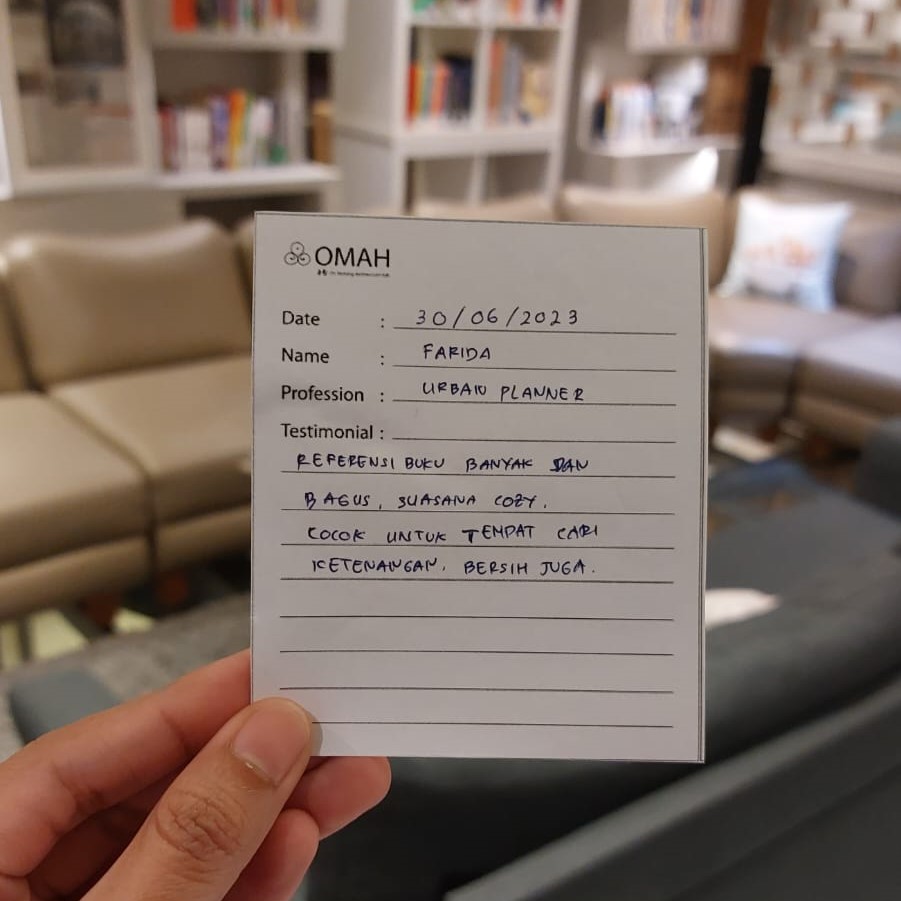 OMAH
Date : 30/06/2023
Name : FARIDA
Profession : URBAN PLANNER
Testimonial :
REFERENSI BUKU BANYAK DAN
BAGUS, SUASANA COZY.
COCOK UNTUK TEMPAT CARI
KETENANGAN. BERSIH JUGA.